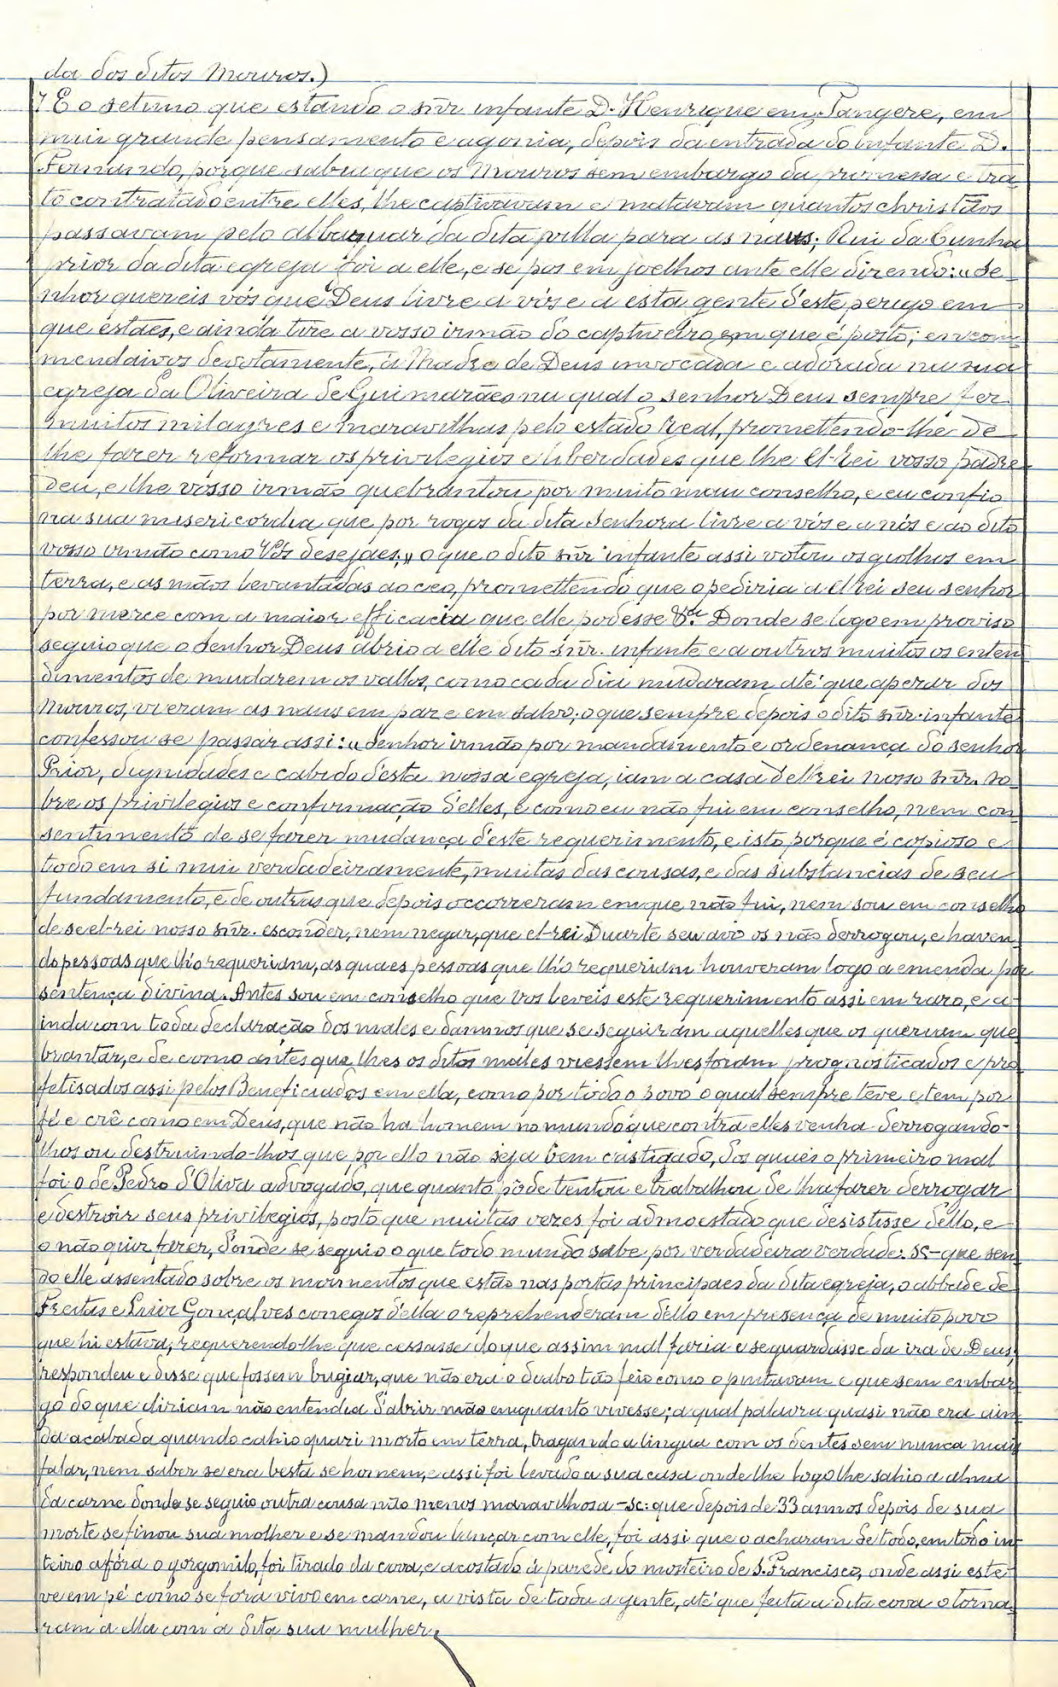 da dos ditos Mouros.)
7 E o setimo que estando o sñr infante D. Henrique em Tangere, em
mui grande pensamento e agonia, depois da entrada do infante D.
Fernando, porque sabia que os Mouros sem embargo da promessa e tra
to contratado entre elles, lhe captivavam e matavam quantos christãos
passavam pelo albaquar da dita villa para as naus; Rui da Cunha
prior da dita egreja foi a elle, e se pos em joelhos ante elle dizendo: "Se
nhor quereis vós que Deus livre a vós e a esta gente d'este perigo em
que estaes, e ainda tire a vosso irmão do captiveiro em que é posto; encom
mendaivos devotamente, á Madre de Deus invocada e adorada na sua
egreja da Oliveira de Guimarães na qual o senhor Deus sempre fez
muitos milagres e maravilhas pelo estado Real, promettendo-lhe de
lhe fazer reformar os privilegios e liberdades que lhe El-rei vosso padre
deu, e lhe vosso irmão quebrantou por muito mau conselho, e eu confio
na sua misericordia que por rogos da dita Senhora livre a vós e a nós e ao dito
vosso irmão como Vós desejaes," o que o dito sñr infante assi votou os giolhos em
terra, e as mãos levantadas ao ceo, promettendo que o pediria a el-rei seu senhor
por merce com a maior efficacia que elle podesse &.ª Donde se logo em proviso
seguio que o Senhor Deus abrio a elle dito sñr. infante e a outros muitos os enten
dimentos de mudarem os vallos, como cada dia mudaram até que apezar dos
Mouros, vieram as naus em paz e em salvo; o que sempre depois o dito sñr. infante
confessou se passar assi: "Senhor irmão por mandamento e ordenança do senhor
Prior, dignidades e cabido d'esta nossa egreja, iam a casa del-rei nosso sñr. so
bre os privilegios e confirmação d'elles, e como eu não fui em conselho, nem con
sentimento de se fazer mudança d'este requerimento, e isto porque é copioso e
todo em si mui verdadeiramente, muitas das cousas, e das substancias de seu
fundamento, e de outras que depois occorreram em que não fui, nem sou em conselho
de se el-rei nosso sñr. esconder, nem negar, que el-rei Duarte seu avô os não derrogou, e haven
do pessoas que lh'o requeriam, as quaes pessoas que lh'o requeriam houveram logo a emenda por
sentença divina. Antes sou em conselho que vos leveis este requerimento assi em razo, e a
inda com toda declaração dos males e damnos que se seguiram aquelles que os queriam que
brantar, e de como antes que lhes os ditos males viessem lhes foram prognosticados e pro
fetisados assi pelos Beneficiados em ella, como por todo o povo o qual sempre teve e tem por
fé e crê como em Deus, que não ha homem no mundo que contra elles venha derrogando-
lhos ou destruindo-lhos que por ello não seja bem castigado, dos quaes o primeiro mal
foi o de Pedro d'Oliva advogado, que quanto pôde tentou e trabalhou de lha fazer derrogar
e destroir seus privilegios, posto que muitas vezes foi admoestado que desistisse d'ello, e
o não quiz fazer, donde se seguio o que todo mundo sabe por verdadeira verdade: sc-que sen
do elle assentado sobre os moimentos que estão nas portas principaes da dita egreja, o abbade de
Freitas e Luiz Gonçalves conegos d'ella o reprehenderam d'ello em presença de muito povo
que hi estava, requerendo-lhe que cessasse do que assim mal fazia e se guardasse da ira de Deus,
respondeu e disse que fossem bugiar, que não era o diabo tão feio como o pintavam e que sem embar
go do que diziam não entendia d'abrir mão enquanto vivesse; a qual palavra quasi não era ain
da acabada quando cahio quazi morto em terra, tragando a lingua com os dentes sem nunca mais
fallar, nem saber se era besta se homem, e assi foi levado a sua casa onde lhe logo lhe sahio a alma
da carne donde se seguio outra cousa não menos maravilhosa-sc: que depois de 33 annos depois de sua
morte se finou sua molher e se mandou lançar com elle, foi assi que o acharam de todo, em todo in
teiro afóra o gorgomilo, foi tirado da cova, e acostado á parede do mosteiro de S. Francisco, onde assi este-
ve em pé como se fora vivo em carne, a vista de toda a gente, até que feita a dita cova o torna
ram a ella com a dita sua mulher.